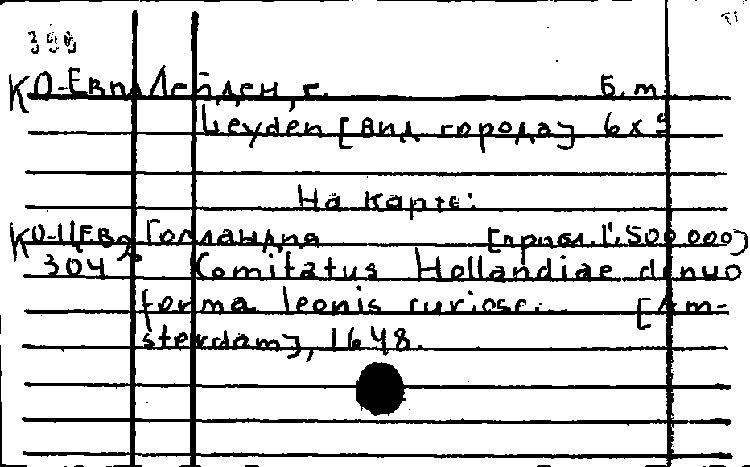 398
КО-Евп Лейден, г. Б.м.
Leyden [Вид города] 6х9
На карте:
КО-ЦЕвр Голландия [прибл. 1:500 000]
304 Comitatus Hollandiae denuo
forma leonis curiose... [Am-
sterdam], 1648.